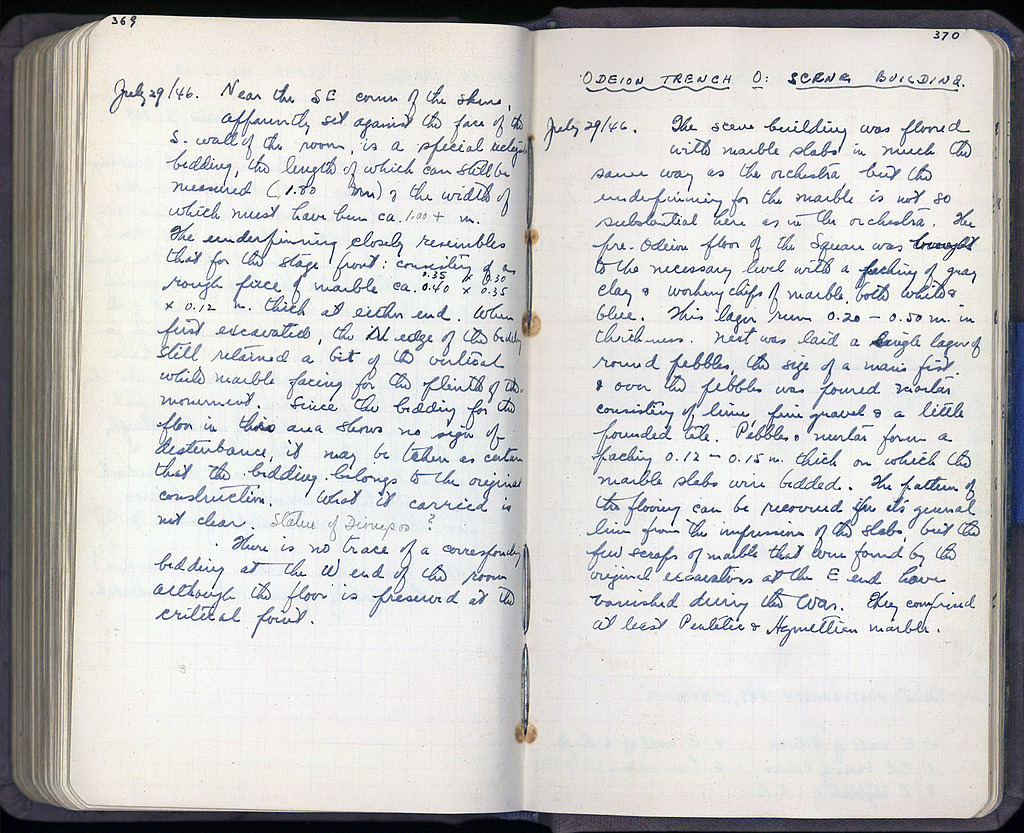 369
July 29/46. Near the SE corner of the skene,
apparently set against the face of the
S. wall of the room, is a special
bedding, the length of which can still be
measured (1.80 m) & the width of
which must have been ca. 1.00 + m.
The underpinning closely resembles
that for the stage front: consisting of a
rough piece of marble ca. 0.35 x 0.30
0.40 x 0.35
x 0.12 m. thick at either end. When
first excavated, the N edge of the bedding
still retained a bit of the vertical
white marble facing for the plinth of the
monument. Since the bedding for the
floor in this area shows no sign of
disturbance, it may be taken as certain
that the bedding belongs to the original
construction. What it carried is
not clear. Statue of Dionysos ?
There is no trace of a corresponding
bedding at the W end of the room
although the floor is preserved at the
critical point.
370
ODEION TRENCH O: SCENE BUILDING.
July 29/46. The scene building was floored
with marble slabs in much the
same way as the orchestra but the
underpinning for the marble is not so
substantial here as in the orchestra. The
pre-Odeion floor of the Square was brought
to the necessary level with a packing of gray
clay & working chips of marble, both white &
blue. This layer runs 0.20 - 0.50 m. in
thickness. Next was laid a single layer of
round pebbles, the size of a man's fist,
& over the pebbles was poured mortar
consisting of lime, fine gravel & a little
pounded tile. Pebbles & mortar form a
packing 0.12 - 0.15 m. thick on which the
marble slabs were bedded. The pattern of
the flooring can be recovered in its general
lines from the impression of the slabs, but the
few scraps of marble that were found by the
original excavators at the E end have
vanished during the War. They comprised
at least Pentelic & Hymettian marble.